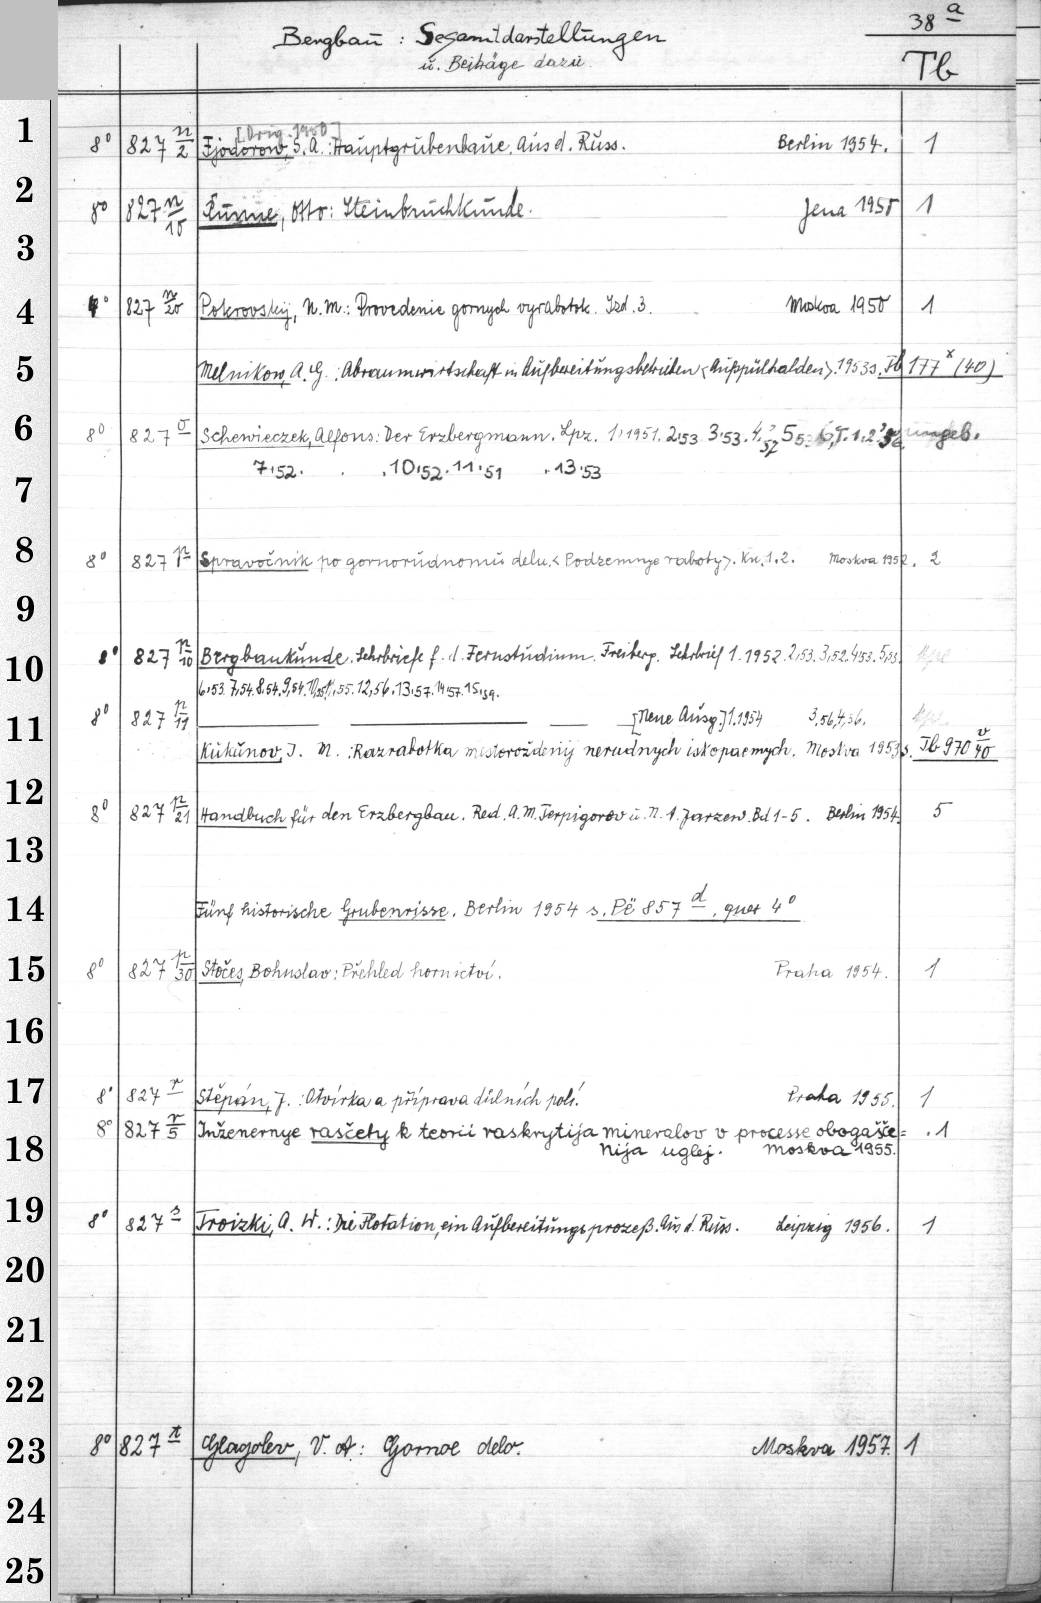 38 a
Bergbau : Gesamtdarstellungen
u. Beiträge dazu.
Tb
1
[Orig. 1950]
8° 827 n/2 Fjodorow, S. A.: Hauptgrubenbaue. Aus d. Russ. Berlin 1954. 1
2
8° 827 n/10 Otto: Steinbruchkunde. Jena 1950 1
3
4 4° 827 n/20 Pokrovskij, N. M.: Provedenie gornych vyrabotok. Izd. 3. Moskva 1950 1
5 Melnikow, A. G.: Abraumwirtschaft in Aufbereitungsbetrieben <Aufspülhalden>. 1953 s. Tb 177 x (40)
6 8° 827 o Schewieczek, Alfons: Der Erzbergmann. Lpz. 1,1951. 2,53. 3,53. 4,57 5, 6, T.1.2, ungeb.
7,52. . .10,52. 11,51 .13,53
7
8 8° 827 p Spravočnik po gornorudnomu delu. <Podzemnye raboty>. Kn. 1.2. Moskva 1952. 2
9
10 8° 827 p/10 Bergbaukunde. Lehrbriefe f. d. Fernstudium. Freiberg. Lehrbrief 1.1952. 2,53. 3,52. 4,53. 5,53.
6,53. 7,54. 8,54. 9,54. 12,56. 13,57. 14,57. 15,59.
11 8° 827 p/11 ——— ——— — [Neue Ausg.] 1,1954 3,56, 4,56.
Kukunov, I. M.: Razrabotka mestoroždenij nerudnych iskopaemych. Moskva 1953 s. Tb 970 v/40
12 8° 827 p/21 Handbuch für den Erzbergbau. Red. A. M. Terpigorev u. N. A. Jarzew. Bd 1-5. Berlin 1954. 5
13
14 Fünf historische Grubenrisse. Berlin 1954 s. Pë 857 d, quer 4°
15 8° 827 p/30 Stočes, Bohuslav: Přehled hornictví. Praha 1954. 1
16
17 8° 827 r Stěpán, J.: Otvírka a příprava důlních polí. Praha 1955. 1
18 8° 827 r/5 Inženernye rasčety k teorii raskrytija mineralov v processe obogašče= . 1
nija uglej. Moskva 1955.
19 8° 827 s Troizki, A. W.: Die Flotation, ein Aufbereitungsprozeß. Aus d. Russ. Leipzig 1956. 1
20
21
22
23 8° 827 t Glagolev, V. A.: Gornoe delo. Moskva 1957. 1
24
25